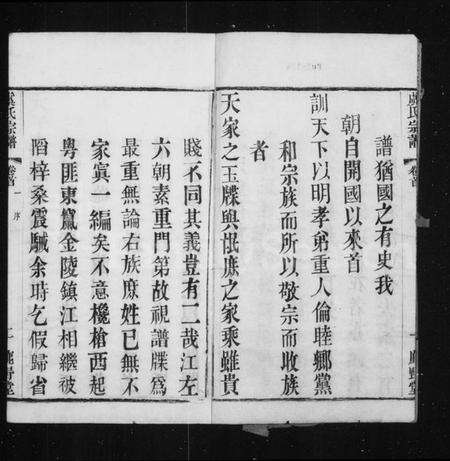 譜猶國之有史我
朝自開國以來首
訓天下以明孝弟重人倫睦鄉黨
和宗族而所以敬宗而收族
者
天家之玉牒與氓庶之家乘雖貴
賤不同其義豈有二哉江左
六朝素重門第故視譜牒爲
最重無論右族庶姓已無不
家寘一編矣不意欃槍西起
粵匪東竄金陵鎮江相繼被
陷梓桑震驚余時乞假歸省
氏宗譜
卷首
氏宗譜
卷首
一
序